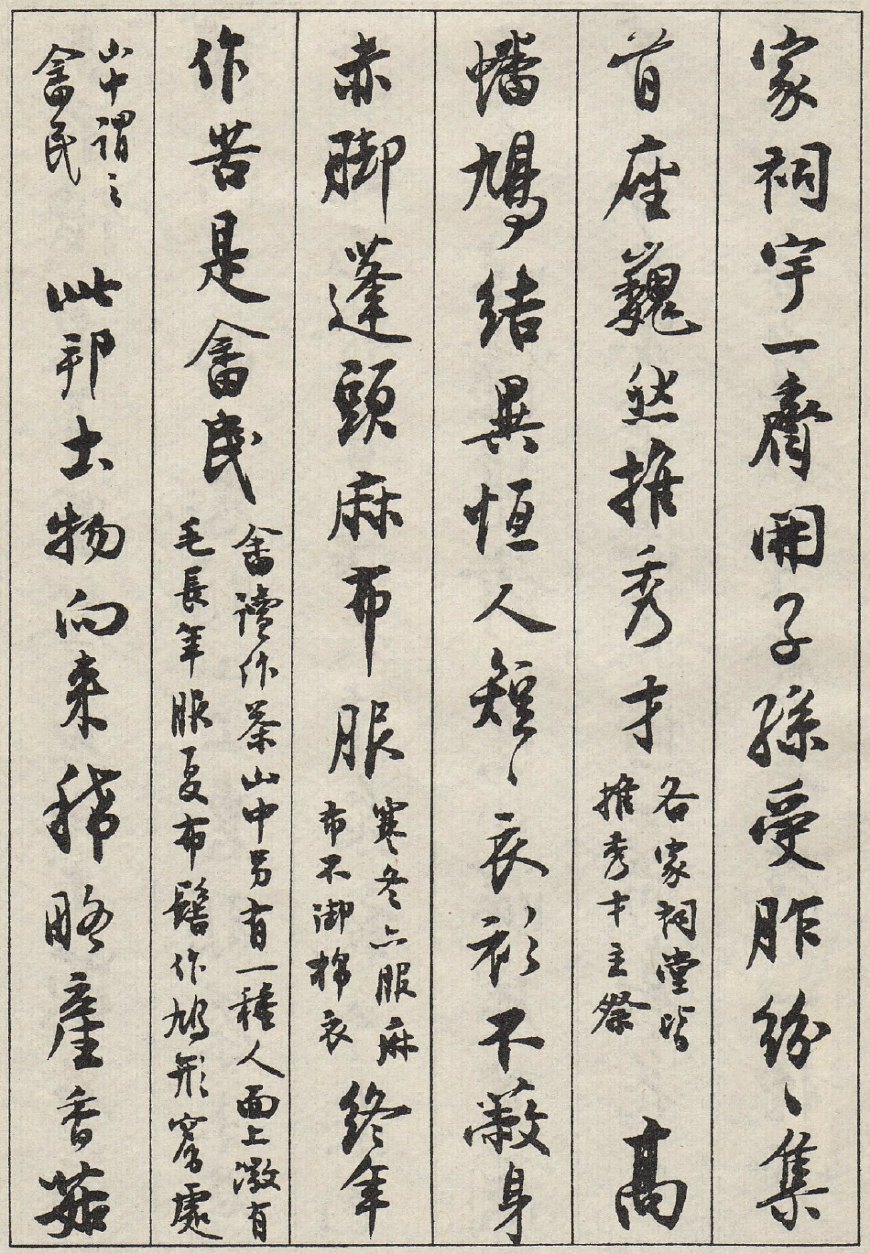 家祠宇一齊開子孫受胙紛〻集
首座巍然推秀才
各家祠堂皆
推秀才主祭
高
蟠鳩結異恒人短〻衣衫不蔽身
赤脚蓬頭麻布服
寒冬亦服麻
布不御棉衣
終年
作苦是畲民
畲讀作茶山中另有一種人面上微有
毛長年服夏布髻作鳩形窩處
山中謂之
畲民
此邦土物向来稀略產香菇